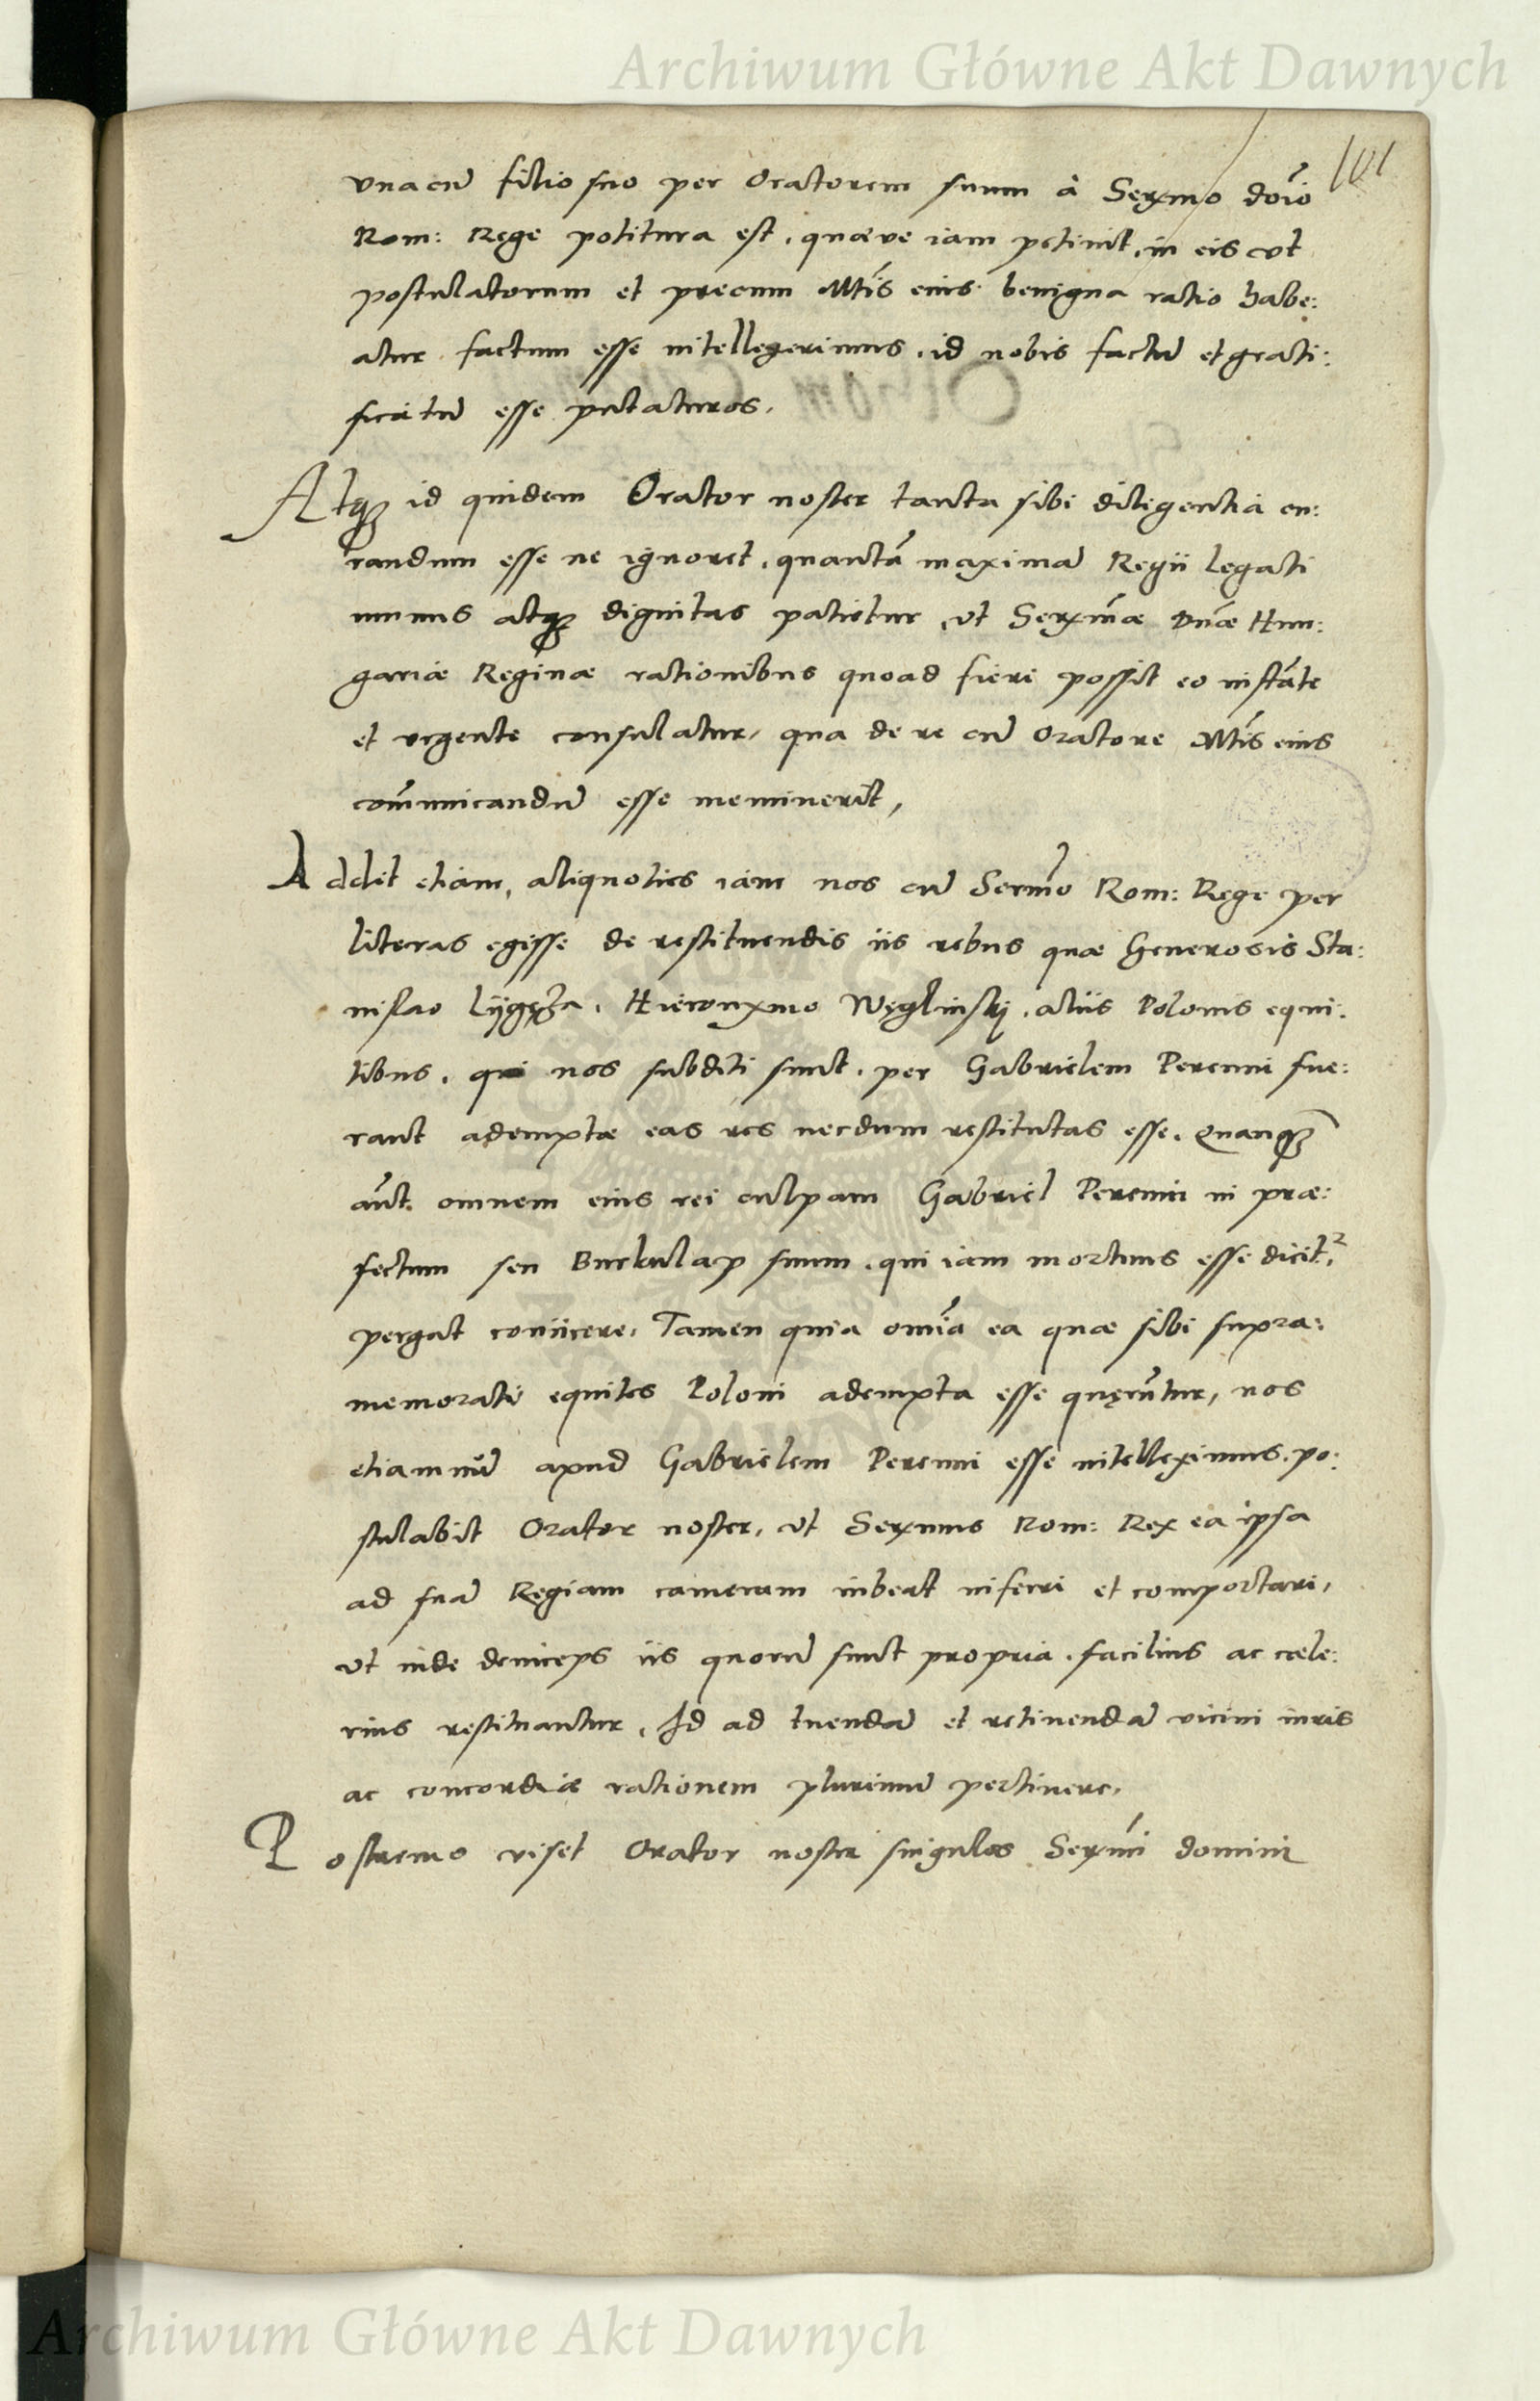 Archiwum Główne Akt Dawnych
101
vna cũ filio suo per Oratorem suum à Serxmo dõio
Rom: Rege potitura est, quæve iam petiuit, in eis vt
postulatorum et precum Mtĩs eius benigna ratio habe:
atur factum esse intellegerimus, id nobis factũ et grati:
ficatũ esse putaturos,
Atq₃ id quidem Orator noster tanta sibi diligentia cu:
randum esse ne ignoret, quantã maximã Regii legati
munus atq₃ dignitas patietur, vt Serxmæ Dnæ Hun:
gariæ Reginæ rationibus quoad fieri possit eo instãte
et vrgente consulatur, qua de re cũ Oratore Mtĩs eius
com̃unicandũ esse meminerit,
Addet etiam, aliquoties iam nos cũ Sermo Rom: Rege per
literas egisse de restituendis iis rebus quæ Generosis Sta:
nislao Lÿgęza, Hieronymo Węglinskÿ, aliis Polonis equi:
tibus, qui nos subditi sunt, per Gabrielem Perenni fue:
rant ademptæ eas res necdum restitutas esse, Quanq₃
aũt omnem eius rei culpam Gabriel Perenni in præ:
fectum seu Burkulap suum, qui iam mortuus esse dicit²,
pergat coniicere, Tamen quia om̃ia ea quæ sibi supra:
memorati equites Poloni adempta esse quęrũtur, nos
etiamnũ apud Gabrielem Perenni esse intelleximus, po:
stulabit Orator noster, vt Serxmus Rom: Rex ea ipsa
ad suã Regiam cameram iubeat inferri et comportari,
vt inde deinceps iis quorũ sunt propria, facilius ac cele:
rius restituantur, Id ad tuendã et retinendã vicini iuris
ac concordiæ rationem plurimũ pertinere,
Postremo viset Orator noster singulos Serxmi domini
Archiwum Główne Akt Dawnych